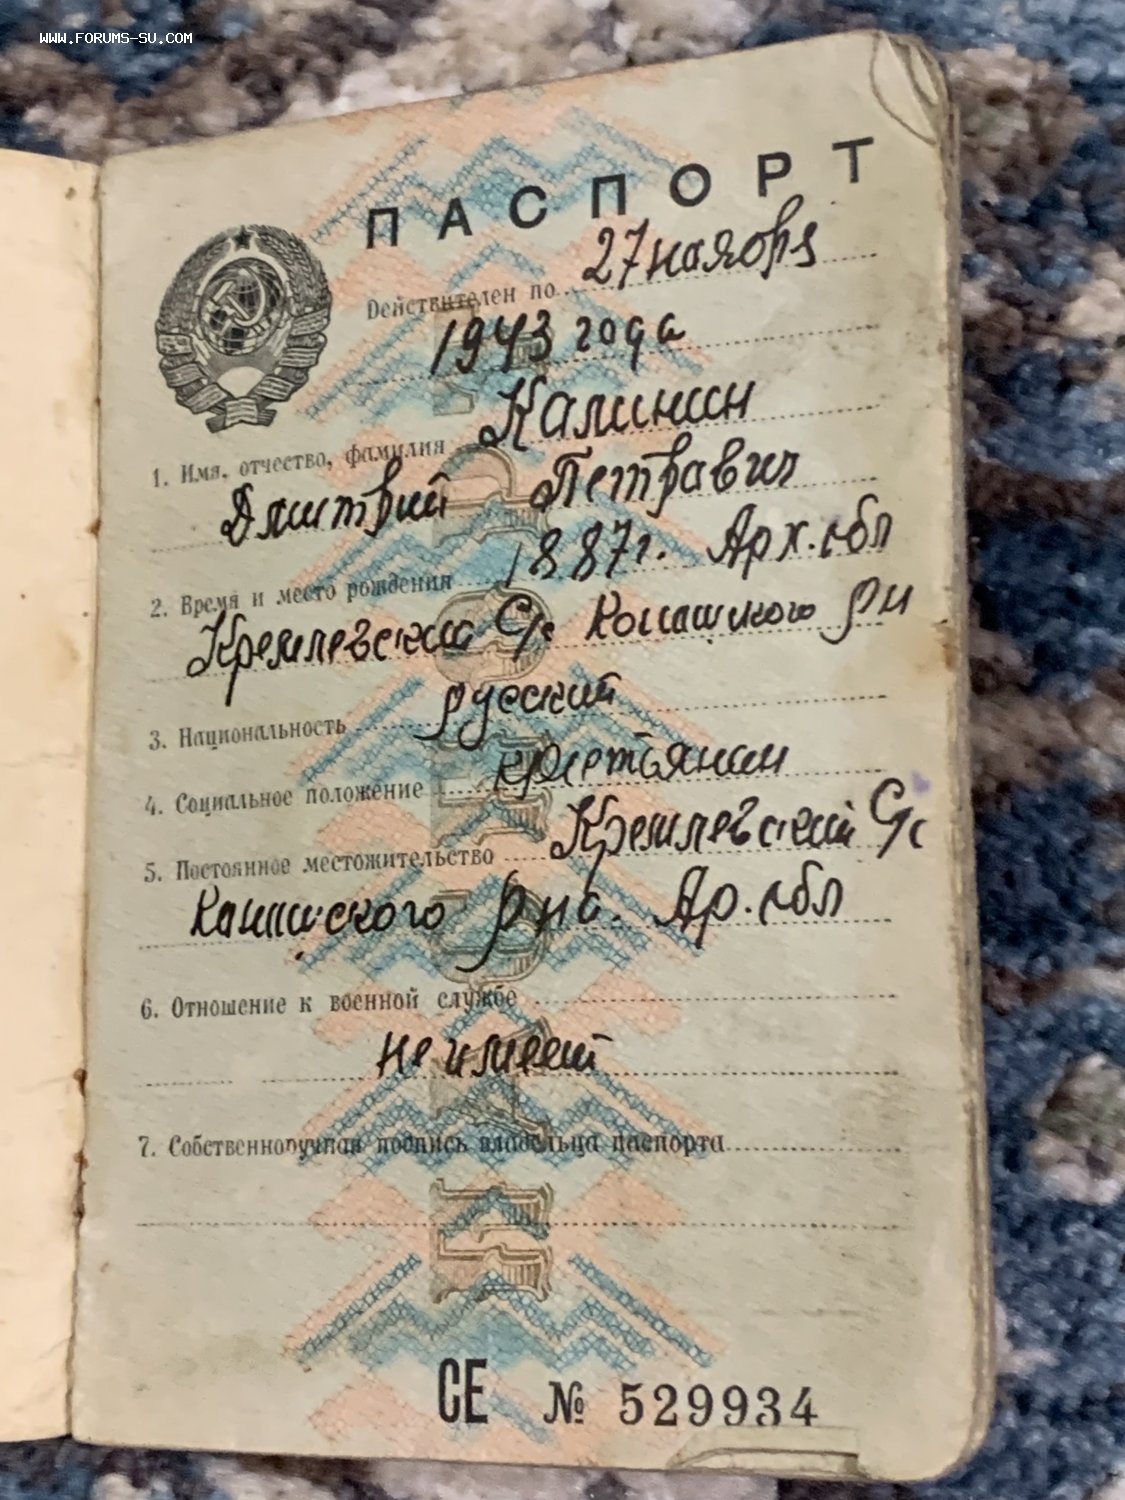 WWW.FORUMS-SU.COM
ПАСПОРТ
Действителен по 27 наября
1943 года
1. Имя, отчество, фамилия Калинин
Дмитрий Петравич
2. Время и место рождения 1887г. Арх. обл
Кремлевский С/с рн
3. Национальность русский
4. Социальное положение крестьянин
5. Постоянное местожительство Кремлевский С/с
рна. Ар. обл
6. Отношение к военной службе
не имеет
7. Собственноручная подпись владельца паспорта
СЕ № 529934